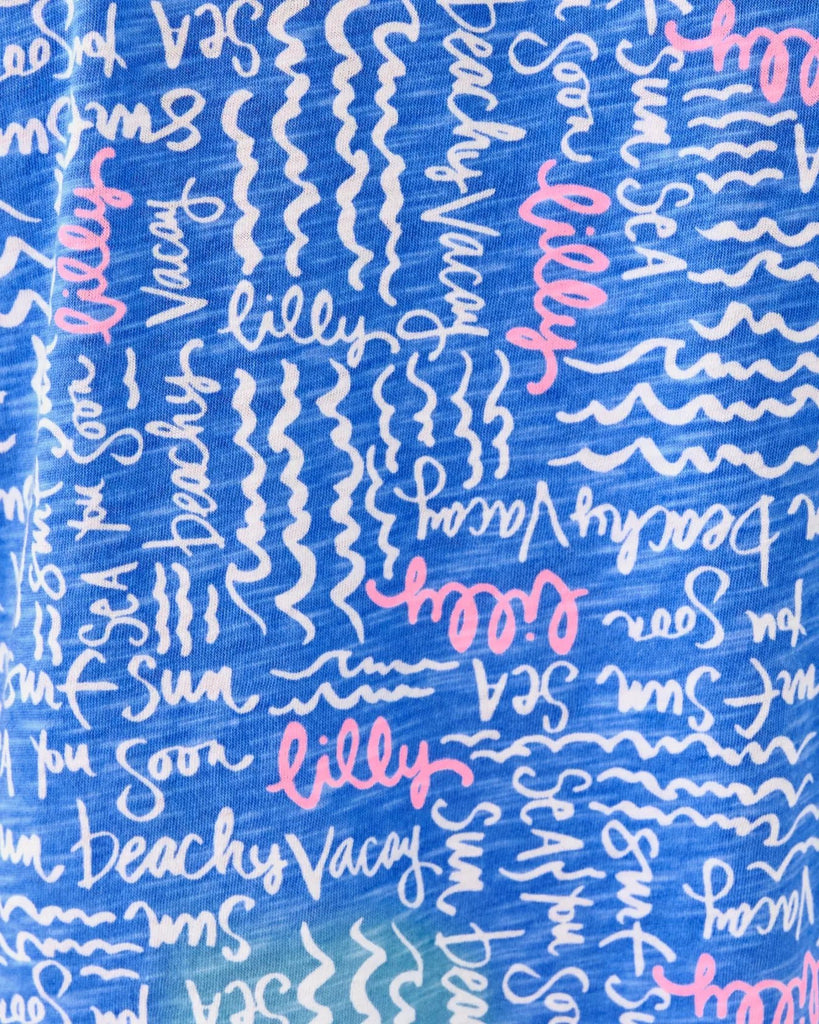 SEA
you
Soon
Surf
Sun
Beachy Vacay
Soon
Sun
SEA
lilly
lilly
Vacay
lilly
lilly
Beachy
Soon
you
SEA
Surf
Beachy Vacay
Vacay
lilly
Soon
you
SEA
Sun
Surf
Surf Sun
you Soon
lilly
Beachy Vacay
Sun
SEA
you
Soon
Sun
Surf
Sun
Vacay
lilly
SEA
Soon
you